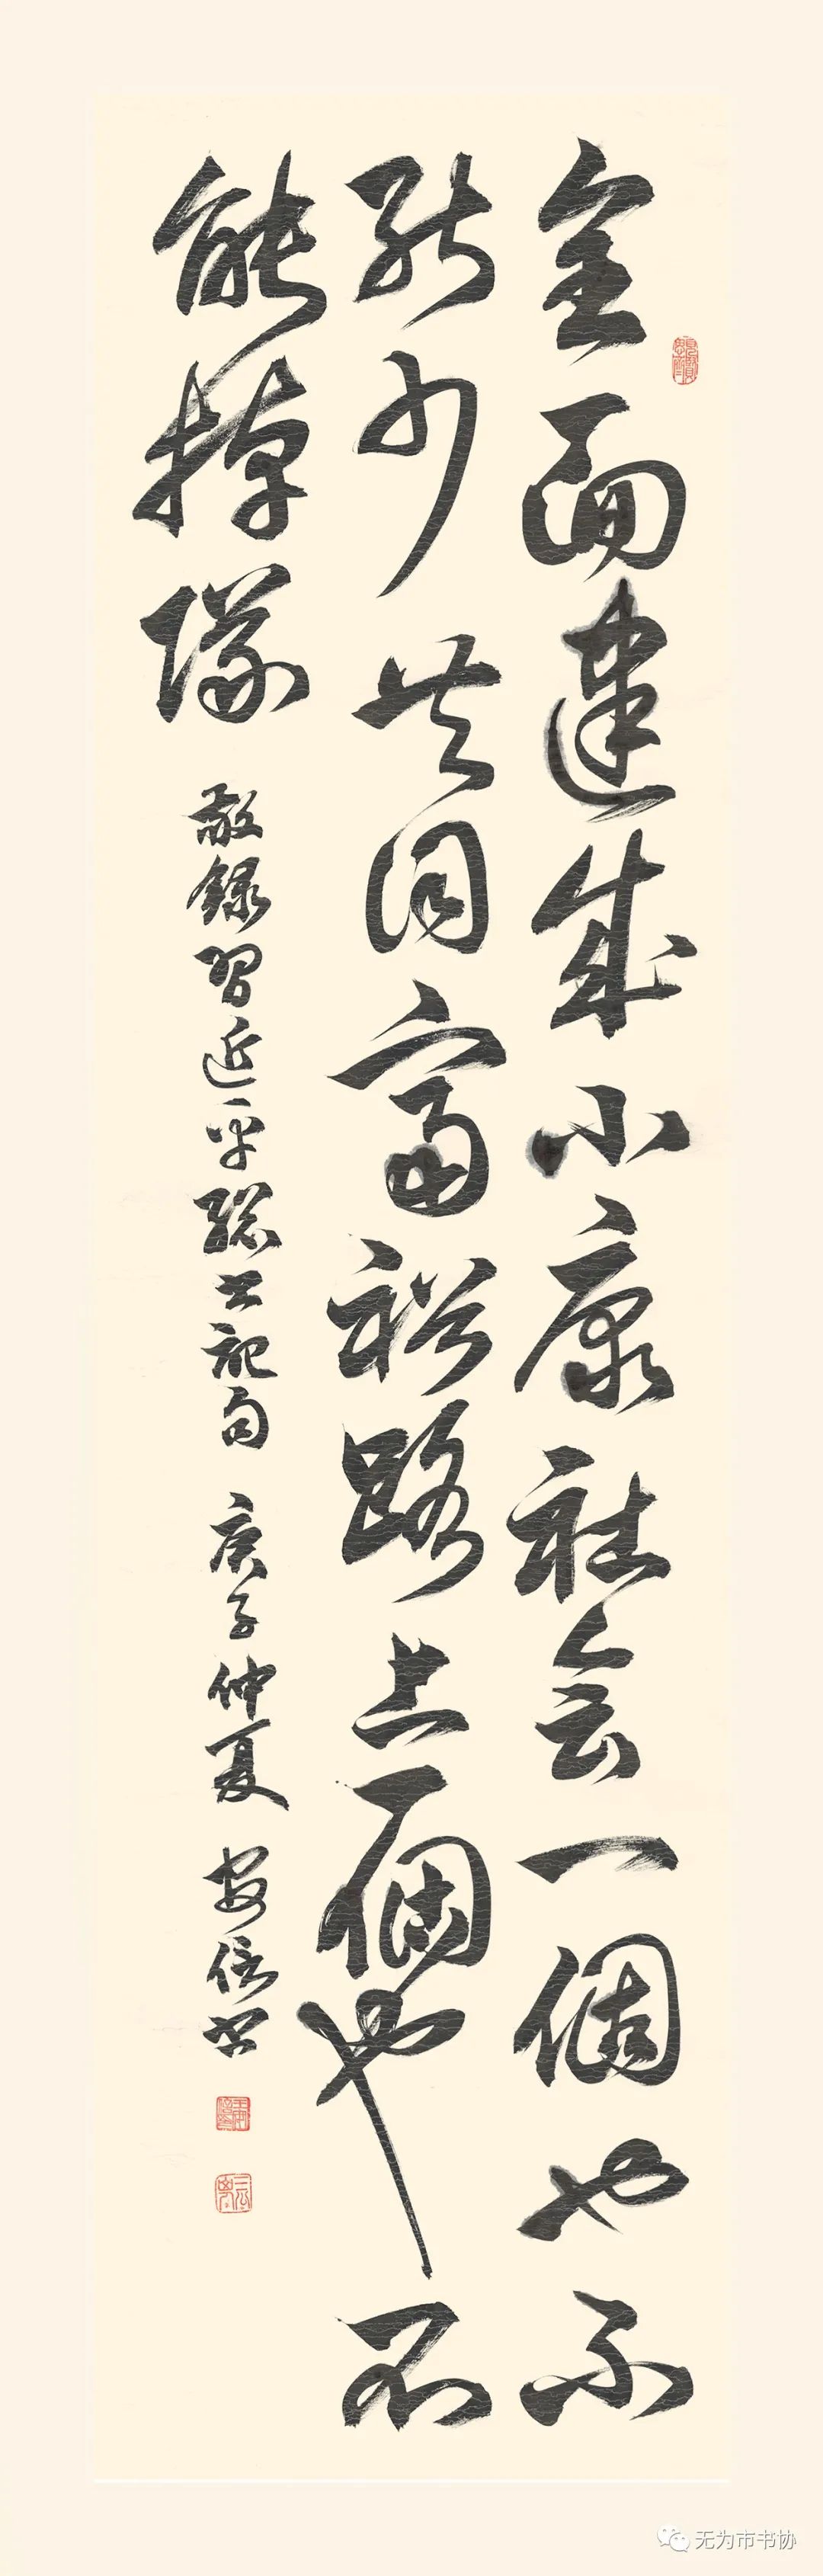 全面建成小康社会一個也不
能少共同富裕路上一個也不
能掉隊
敬録習近平総书記句 庚子仲夏 安信书
无为市书协